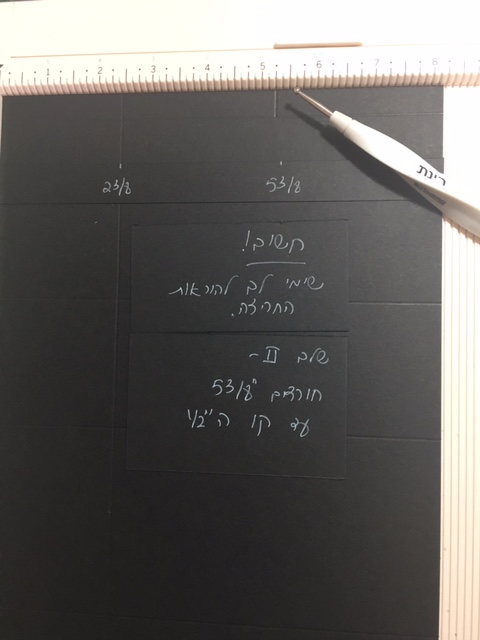 1 2 3 4 5 6 7 8
רינת
2 3/8 5 3/8
חשוב!
שימי לב להוראות
החריצה.
שלב II -
חורצים 5 3/8"
עד קו ה 1/2"